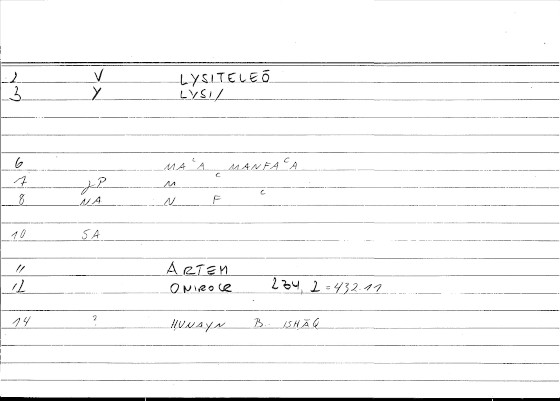 2 V LYSITELEŌ
3 Y LYSI/
6 MAᶜA MANFAᶜA
7 gP M ᶜ
8 NA N F ᶜ
10 SA
11 ARTEM
12 ONIROCR 234, 2 = 432.11
14 ? HUNAYN B. ISḤĀQ